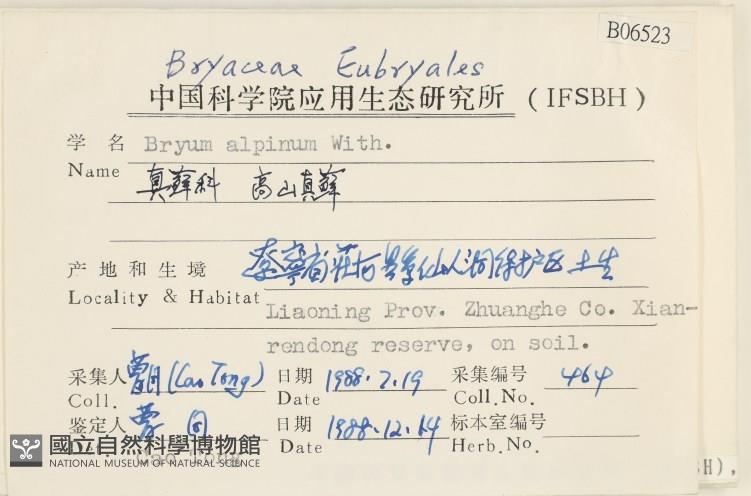 B06523
Bryaceae Eubryales
中国科学院应用生态研究所 (IFSBH)
学名 Bryum alpinum With.
Name 真藓科 高山真藓
产地和生境 省莊河县仙人洞保护区 土生
Locality & Habitat Liaoning Prov. Zhuanghe Co. Xian-
rendong reserve, on soil.
采集人 (Cao Tong) 日期 1988.7.19 采集编号 464
Coll. Date Coll.No.
鉴定人 曹同 日期 1988.12.14 标本室编号
Date Herb.No.
國立自然科學博物館
NATIONAL MUSEUM OF NATURAL SCIENCE
Cao Tong
BH),